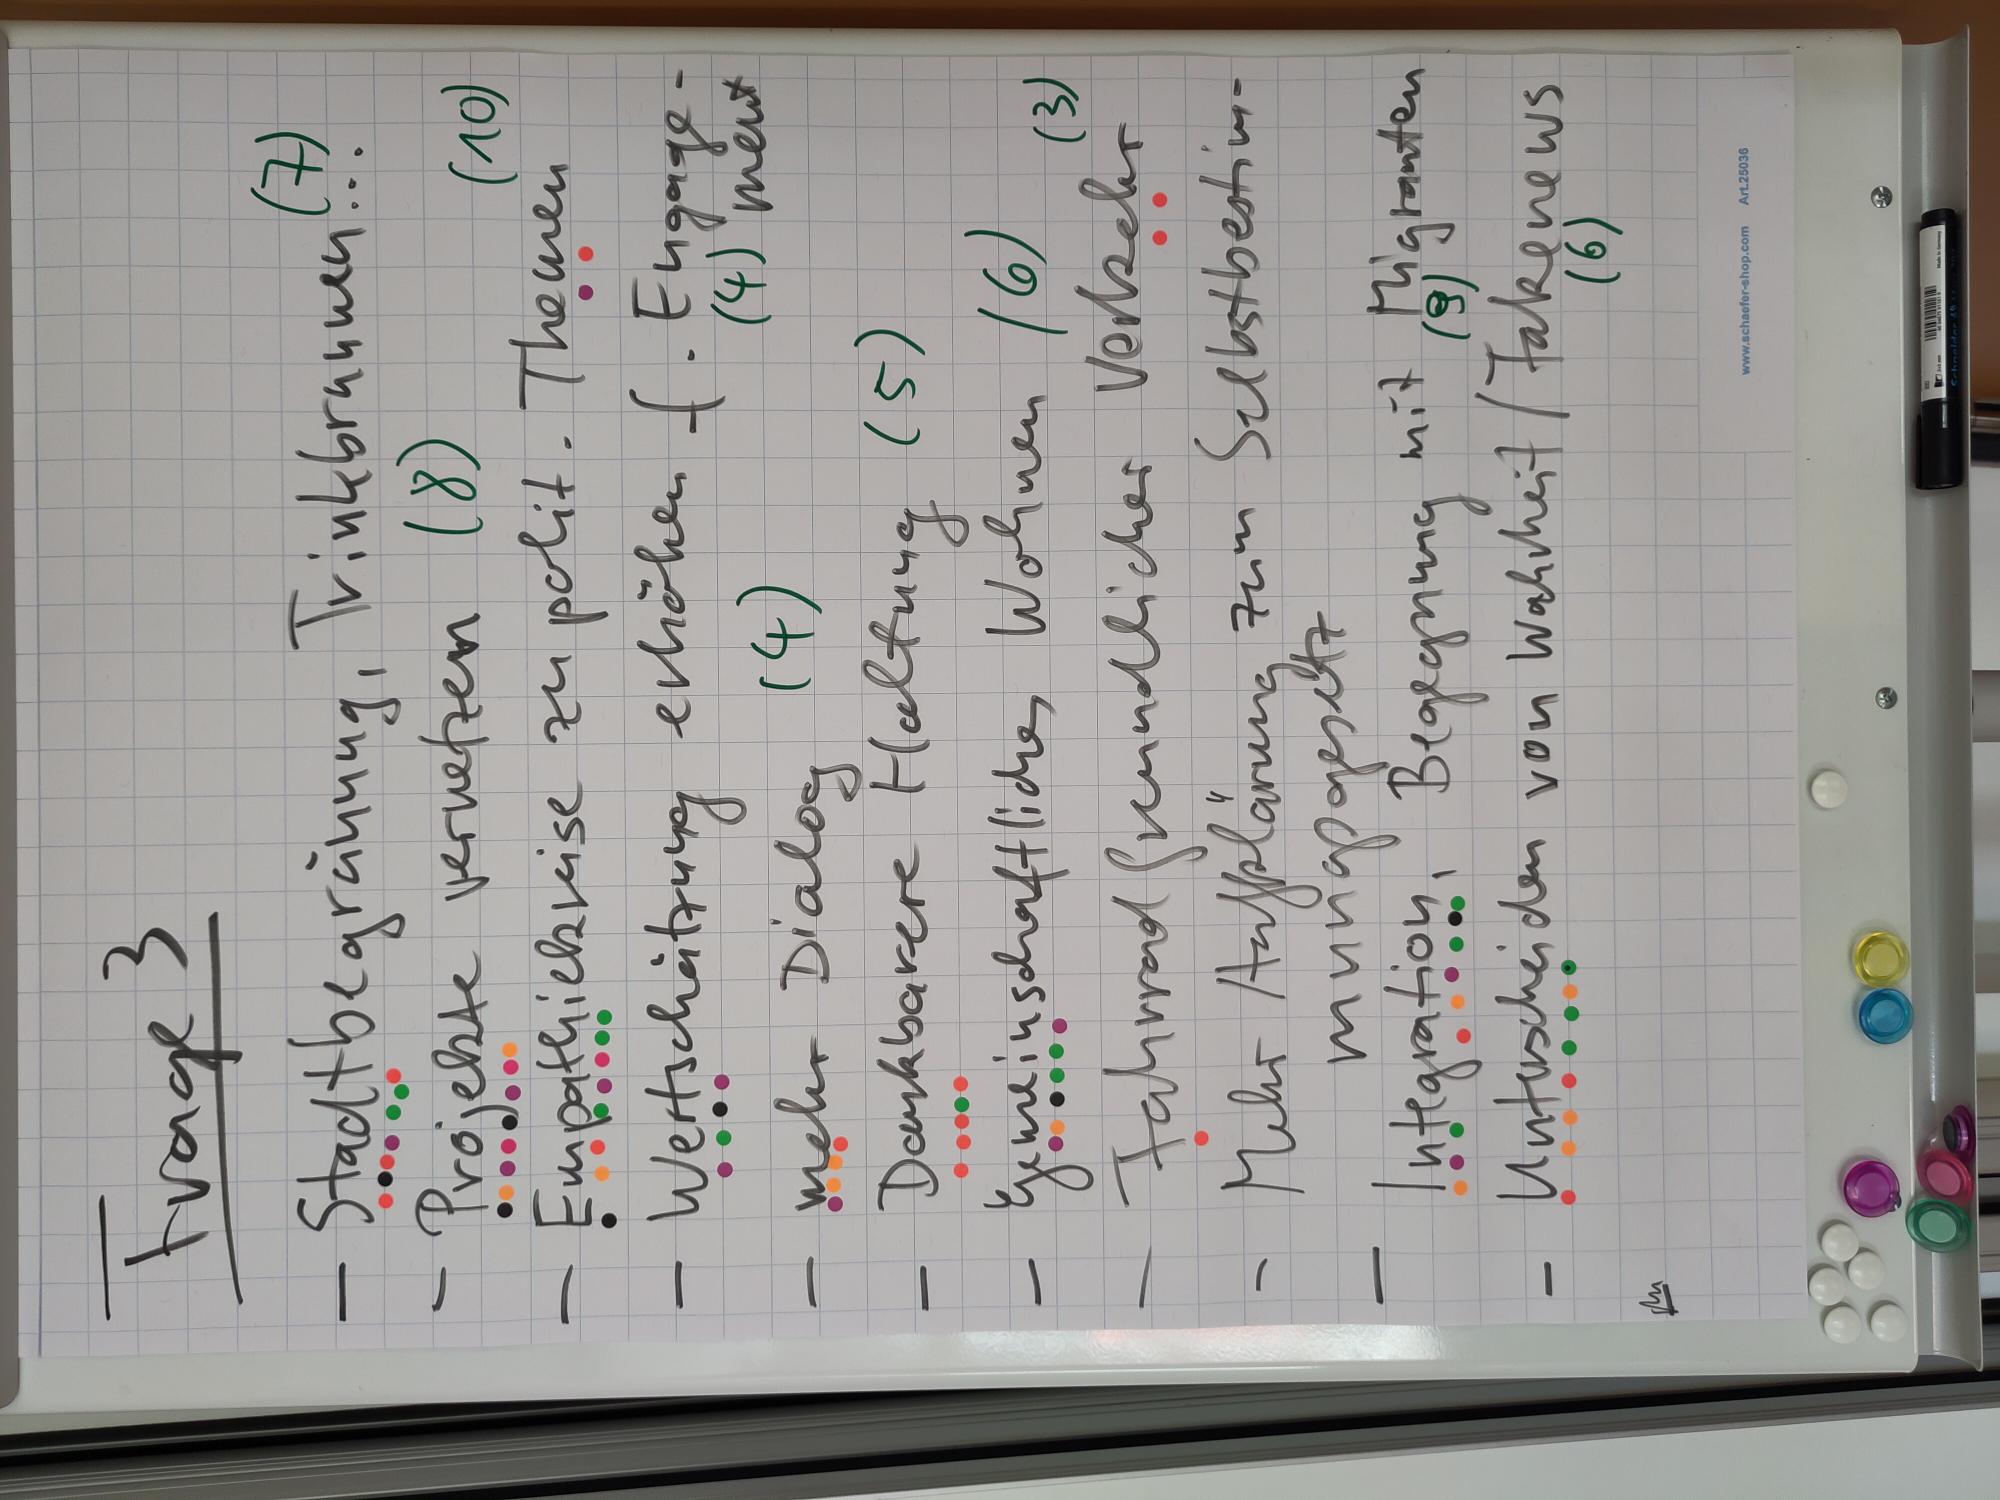 Frage 3
- Stadtbegrünung, Trinkbrunnen... (7)
- Projekte vernetzen (8)
(10)
- Empathiekreise zu polit. Themen
- Wertschätzung erhöhen f. Engage-
(4) ment
- mehr Dialog (4)
- Dankbarere Haltung (5)
- Gemeinschaftliches Wohnen (6)
(3)
- Fahrradfreundlicher Verkehr
- Mehr Aufklärung zum Selbstbestim-
mungsgesetz
- Integration, Begegnung mit Migranten
(9)
- Unterscheiden von Wahrheit/Fakenews
(6)
www.schaefer-shop.com Art.25036
Made in Germany
Schneider